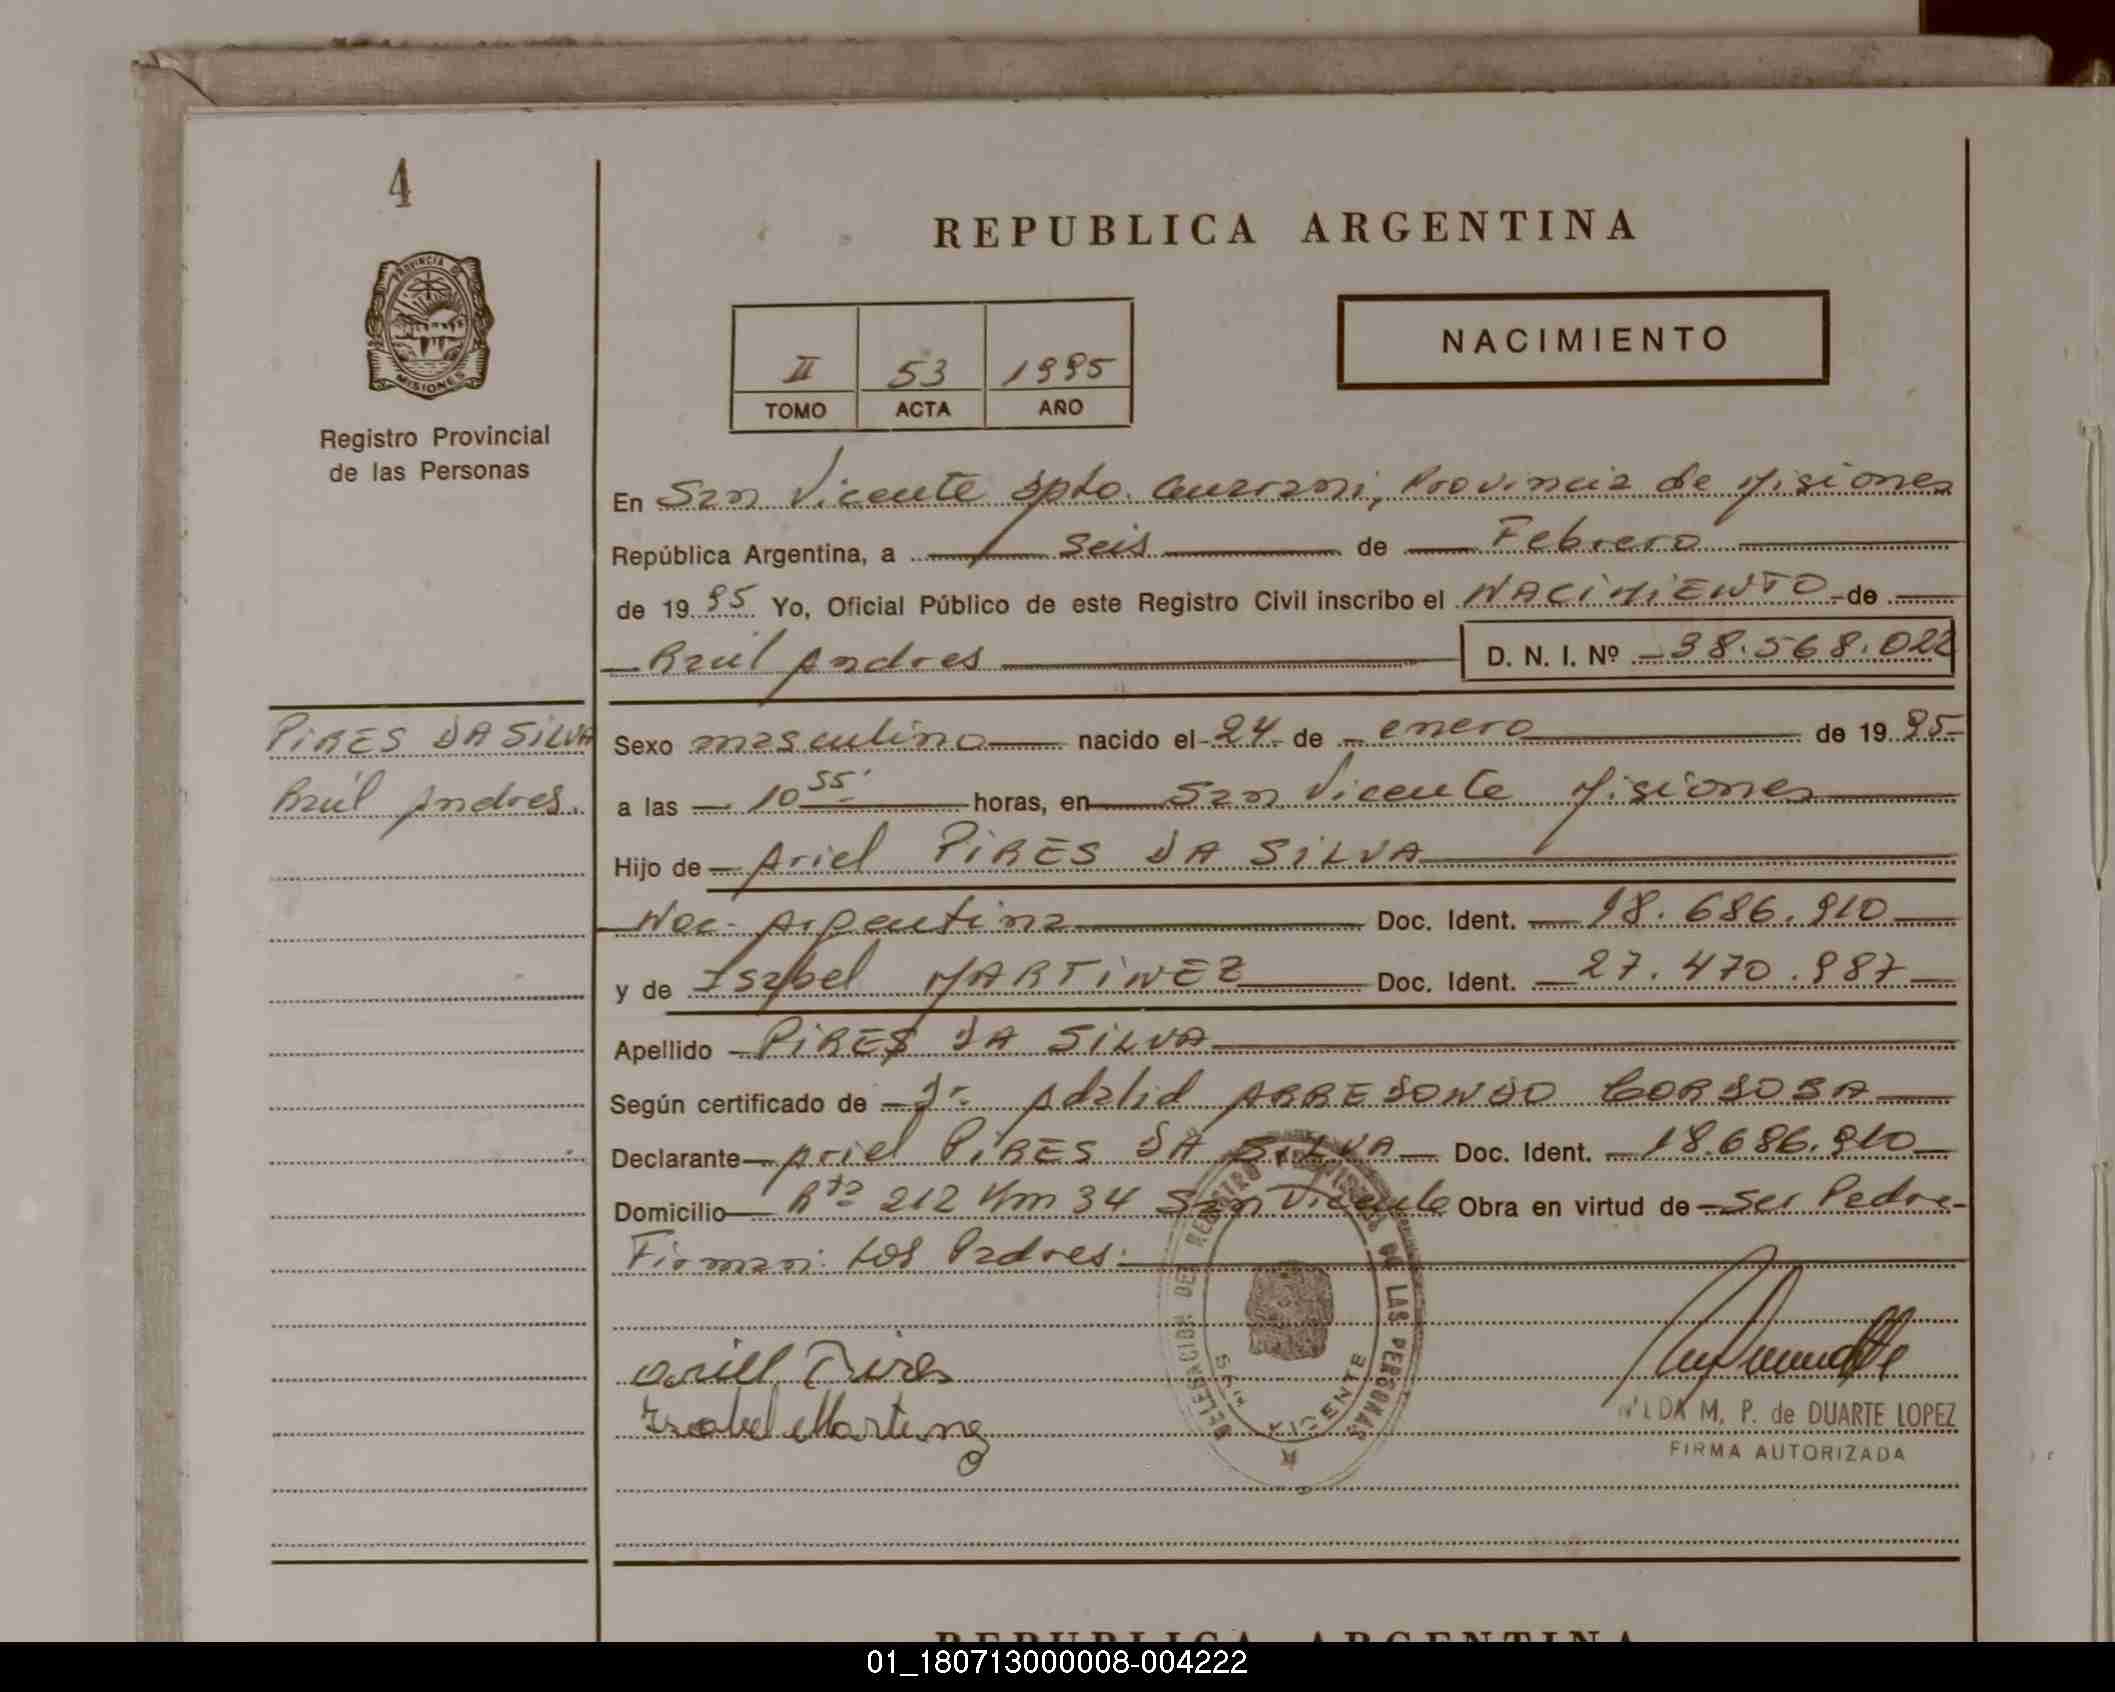 4
PROVINCIA DE
MISIONES
Registro Provincial
de las Personas
REPUBLICA ARGENTINA
NACIMIENTO
II 53 1995
TOMO ACTA AÑO
En San Vicente Dpto. Guarani, Provincia de Misiones
República Argentina, a seis de Febrero
de 1995 Yo, Oficial Público de este Registro Civil inscribo el NACIMIENTO de
Raúl Andres D. N. I. Nº 38.568.022
PIRES DA SILVA
Raúl Andres.
Sexo masculino nacido el 24 de enero de 1995
a las 10 55' horas, en San Vicente Misiones
Hijo de Ariel PIRES DA SILVA
Nac. Argentina Doc. Ident. 18.686.910
y de Isabel MARTINEZ Doc. Ident. 27.470.987
Apellido PIRES DA SILVA
Según certificado de Dr. Adalid ARREDONDO CORDOBA
Declarante Ariel PIRES DA SILVA Doc. Ident. 18.686.910
Domicilio Rta 212 Km 34 San Vicente Obra en virtud de ser Padre
Firman: Los Padres.
DELEGACION DEL REGISTRO PROVINCIAL DE LAS PERSONAS
SAN VICENTE
Ariel Pires
Isabel Martinez
NILDA M. P. de DUARTE LOPEZ
FIRMA AUTORIZADA
REPUBLICA ARGENTINA
01_180713000008-004222